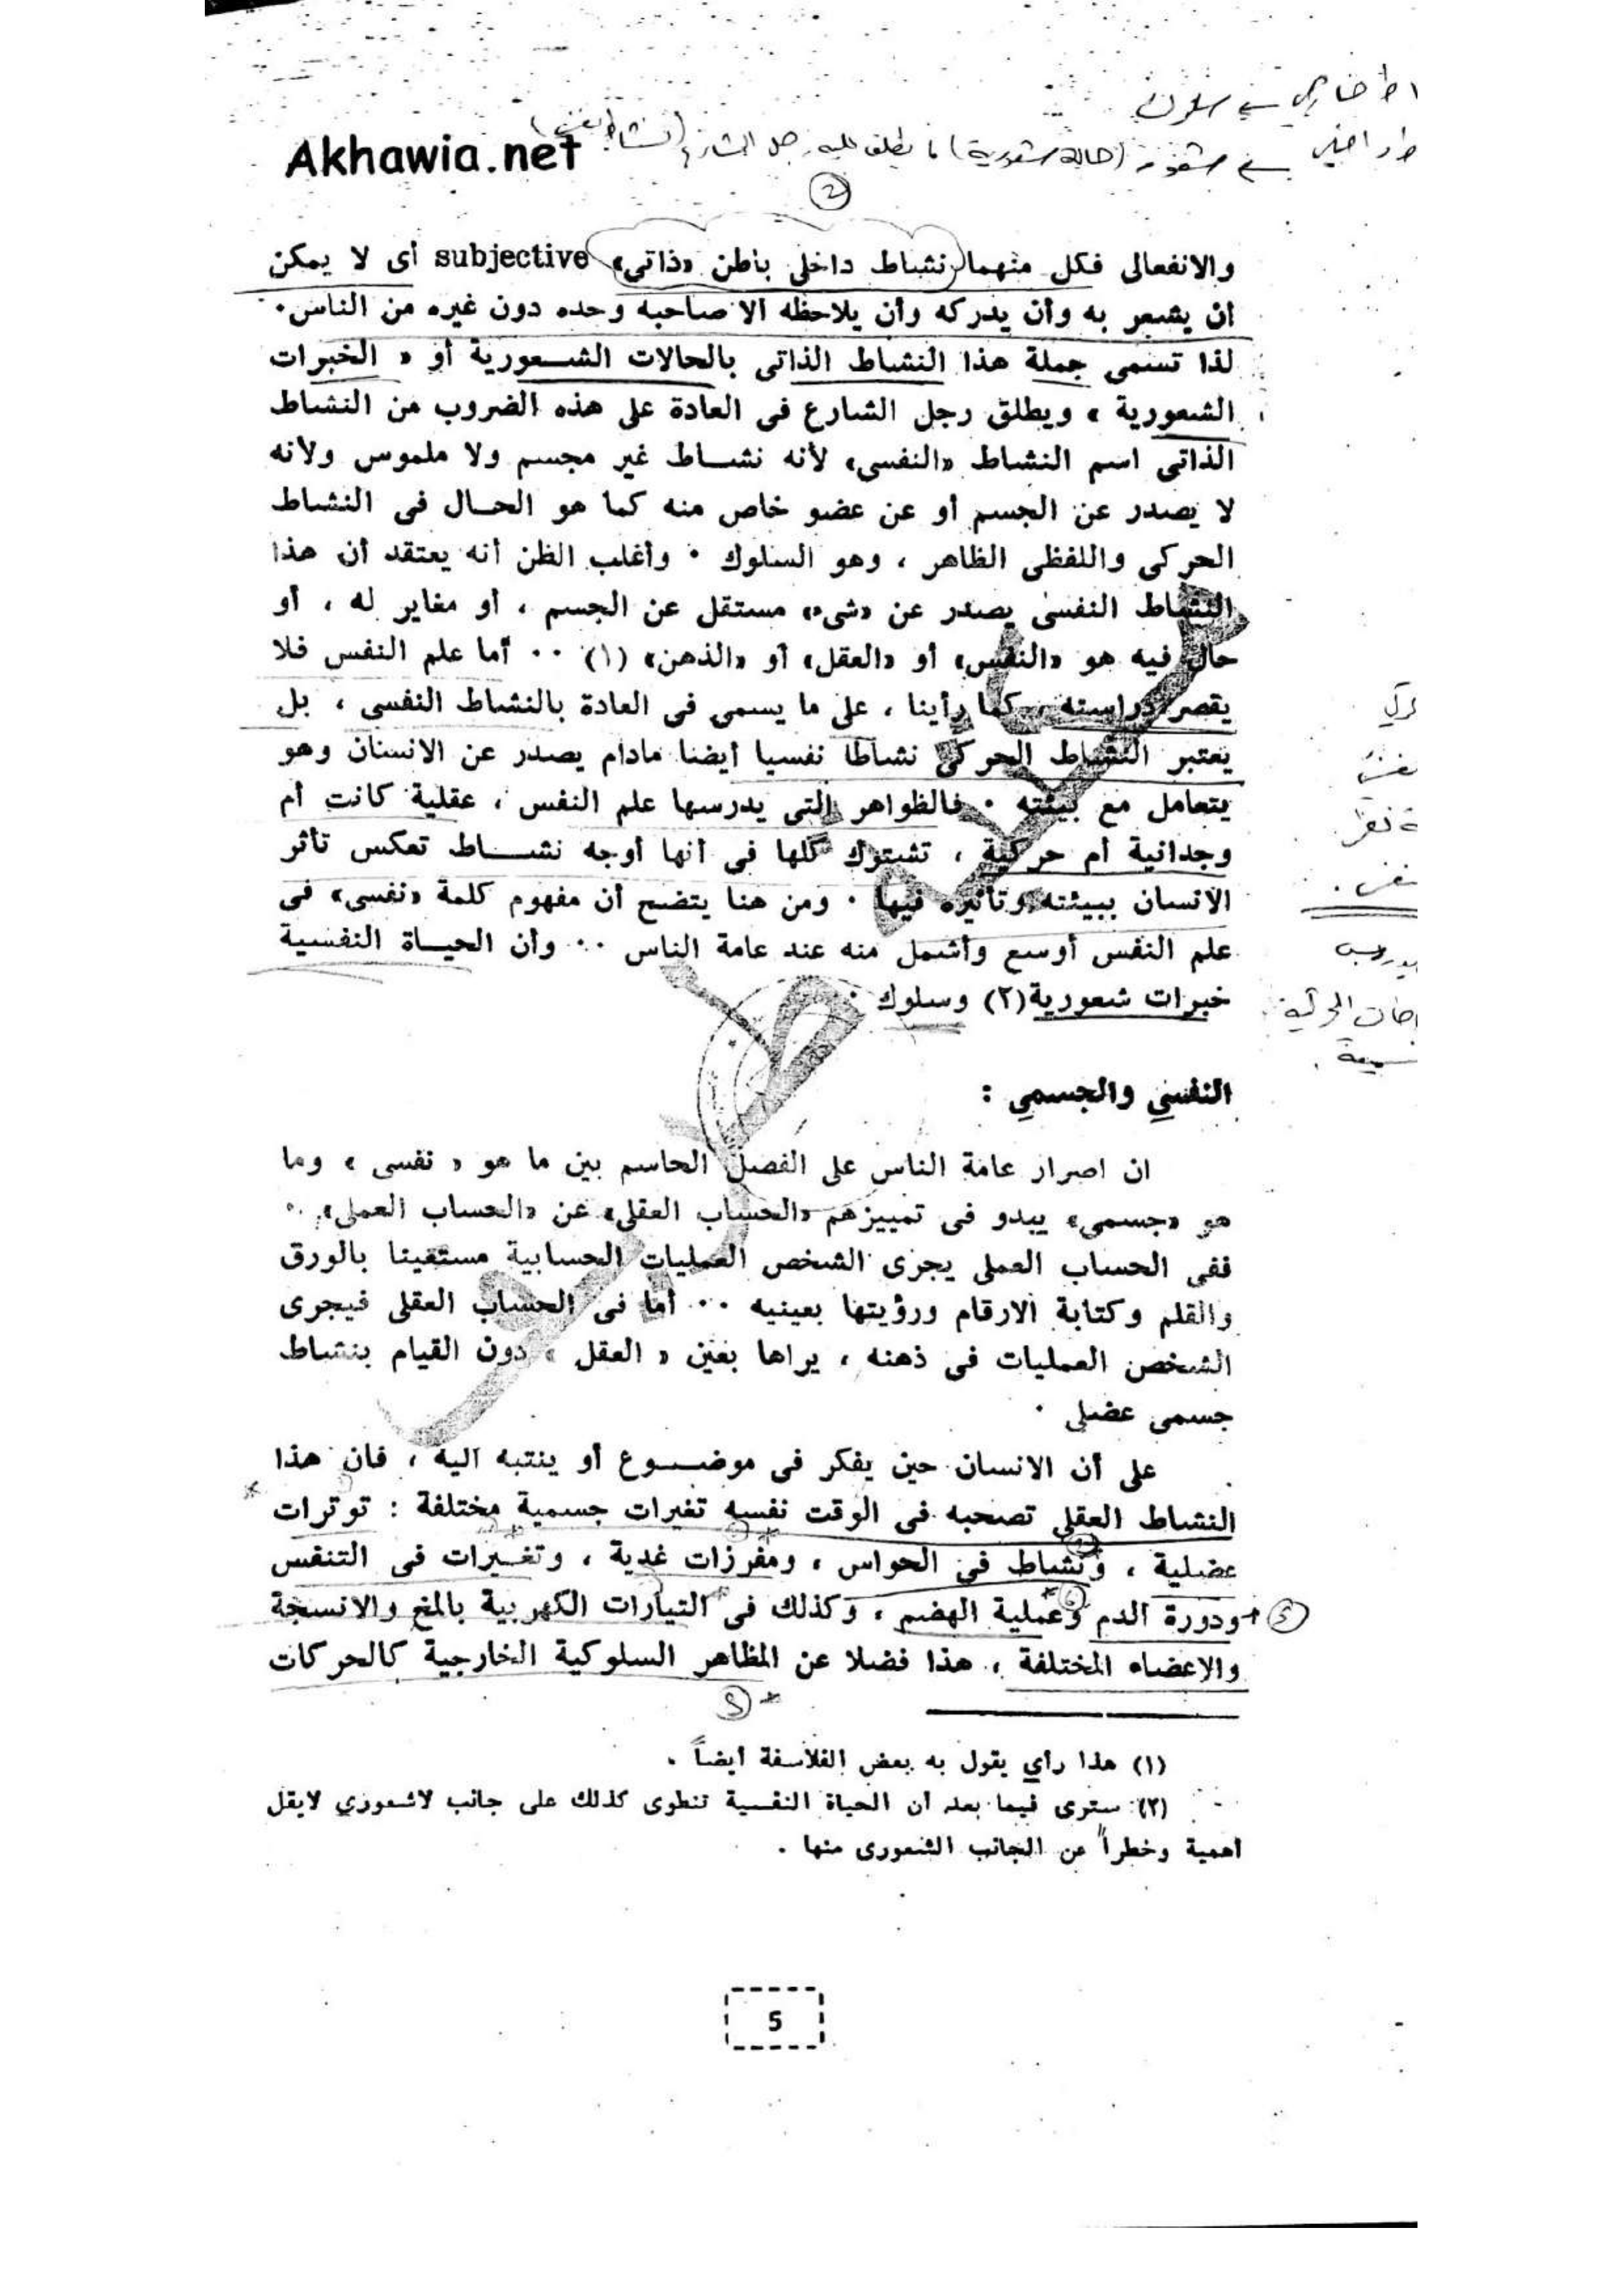 Akhawia.net
والانفعالى فكل منهما نشاط داخلى باطن «ذاتى» subjective أى لا يمكن
أن يشعر به وأن يدركه وأن يلاحظه الا صاحبه وحده دون غيره من الناس.
لذا تسمى جملة هذا النشاط الذاتى بالحالات الشعورية أو « الخبرات
الشعورية » ويطلق رجل الشارع فى العادة على هذه الضروب من النشاط
الذاتى اسم النشاط «النفسى» لأنه نشاط غير مجسم ولا ملموس ولانه
لا يصدر عن الجسم أو عن عضو خاص منه كما هو الحال فى النشاط
الحركى واللفظى الظاهر ، وهو السلوك . وأغلب الظن أنه يعتقد أن هذا
النشاط النفسى يصدر عن «شىء» مستقل عن الجسم ، أو مغاير له ، أو
حال فيه هو «النفس» أو «العقل» أو «الذهن» (١) .. أما علم النفس فلا
يقصر دراسته ، كما رأينا ، على ما يسمى فى العادة بالنشاط النفسى ، بل
يعتبر النشاط الحركى نشاطا نفسيا أيضا مادام يصدر عن الانسان وهو
يتعامل مع بيئته . فالظواهر التى يدرسها علم النفس ، عقلية كانت أم
وجدانية أم حركية ، تشترك كلها فى أنها أوجه نشاط تعكس تأثر
الانسان ببيئته وتأثيره فيها . ومن هنا يتضح أن مفهوم كلمة «نفسى» فى
علم النفس أوسع وأشمل منه عند عامة الناس .. وأن الحياة النفسية
خبرات شعورية(٢) وسلوك .
النفسي والجسمي :
ان اصرار عامة الناس على الفصل الحاسم بين ما هو « نفسى » وما
هو «جسمى» يبدو فى تمييزهم «الحساب العقلى» عن «الحساب العملى» ..
ففى الحساب العملى يجرى الشخص العمليات الحسابية مستعينا بالورق
والقلم وكتابة الارقام ورؤيتها بعينيه .. أما فى الحساب العقلى فيجرى
الشخص العمليات فى ذهنه ، يراها بعين « العقل » دون القيام بنشاط
جسمى عضلى .
على أن الانسان حين يفكر فى موضوع أو ينتبه اليه ، فان هذا
النشاط العقلى تصحبه فى الوقت نفسه تغيرات جسمية مختلفة : توترات
عضلية ، ونشاط فى الحواس ، ومفرزات غدية ، وتغيرات فى التنفس
ودورة الدم وعملية الهضم ، وكذلك فى التيارات الكهربية بالمخ والانسجة
والاعضاء المختلفة ، هذا فضلا عن المظاهر السلوكية الخارجية كالحركات
(١) هذا رأي يقول به بعض الفلاسفة أيضاً .
(٢) سترى فيما بعد أن الحياة النفسية تنطوى كذلك على جانب لاشعوري لايقل
أهمية وخطراً عن الجانب الشعورى منها .
5